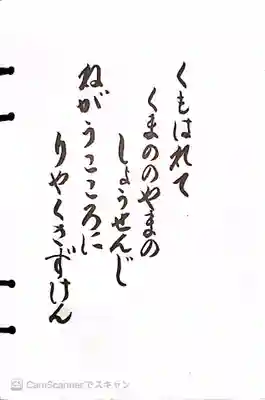 くもはれて
くまののやまの
しょうせんじ
ねがうこころに
りやくさずけん
CamScannerでスキャン